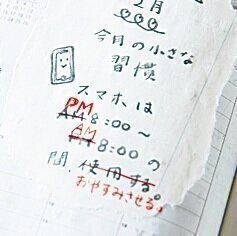 2月
今月の小さな
習慣
スマホは
PM
AM 8:00～
AM
PM 8:00の
間、使用する。
おやすみさせる。